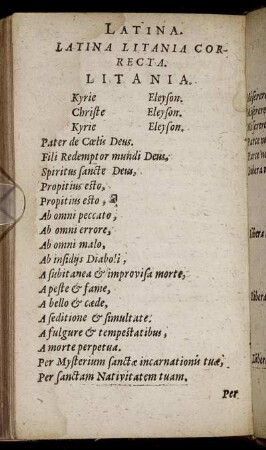 LATINA.
LATINA LITANIA COR-
RECTA.
LITANIA.
Kyrie Eleyson.
Christe Eleyson.
Kyrie Eleyson.
Pater de Cœlis Deus.
Fili Redemptor mundi Deus,
Spiritus sancte Deus,
Propitius esto,
Propitius esto,
Ab omni peccato,
Ab omni errore,
Ab omni malo,
Ab insidijs Diaboli,
A subitanea & improvisa morte,
A peste & fame,
A bello & cæde,
A seditione & simultate.
A fulgure & tempestatibus,
A morte perpetua.
Per Mysterium sanctæ incarnationis tuæ,
Per sanctam Nativitatem tuam.
Per